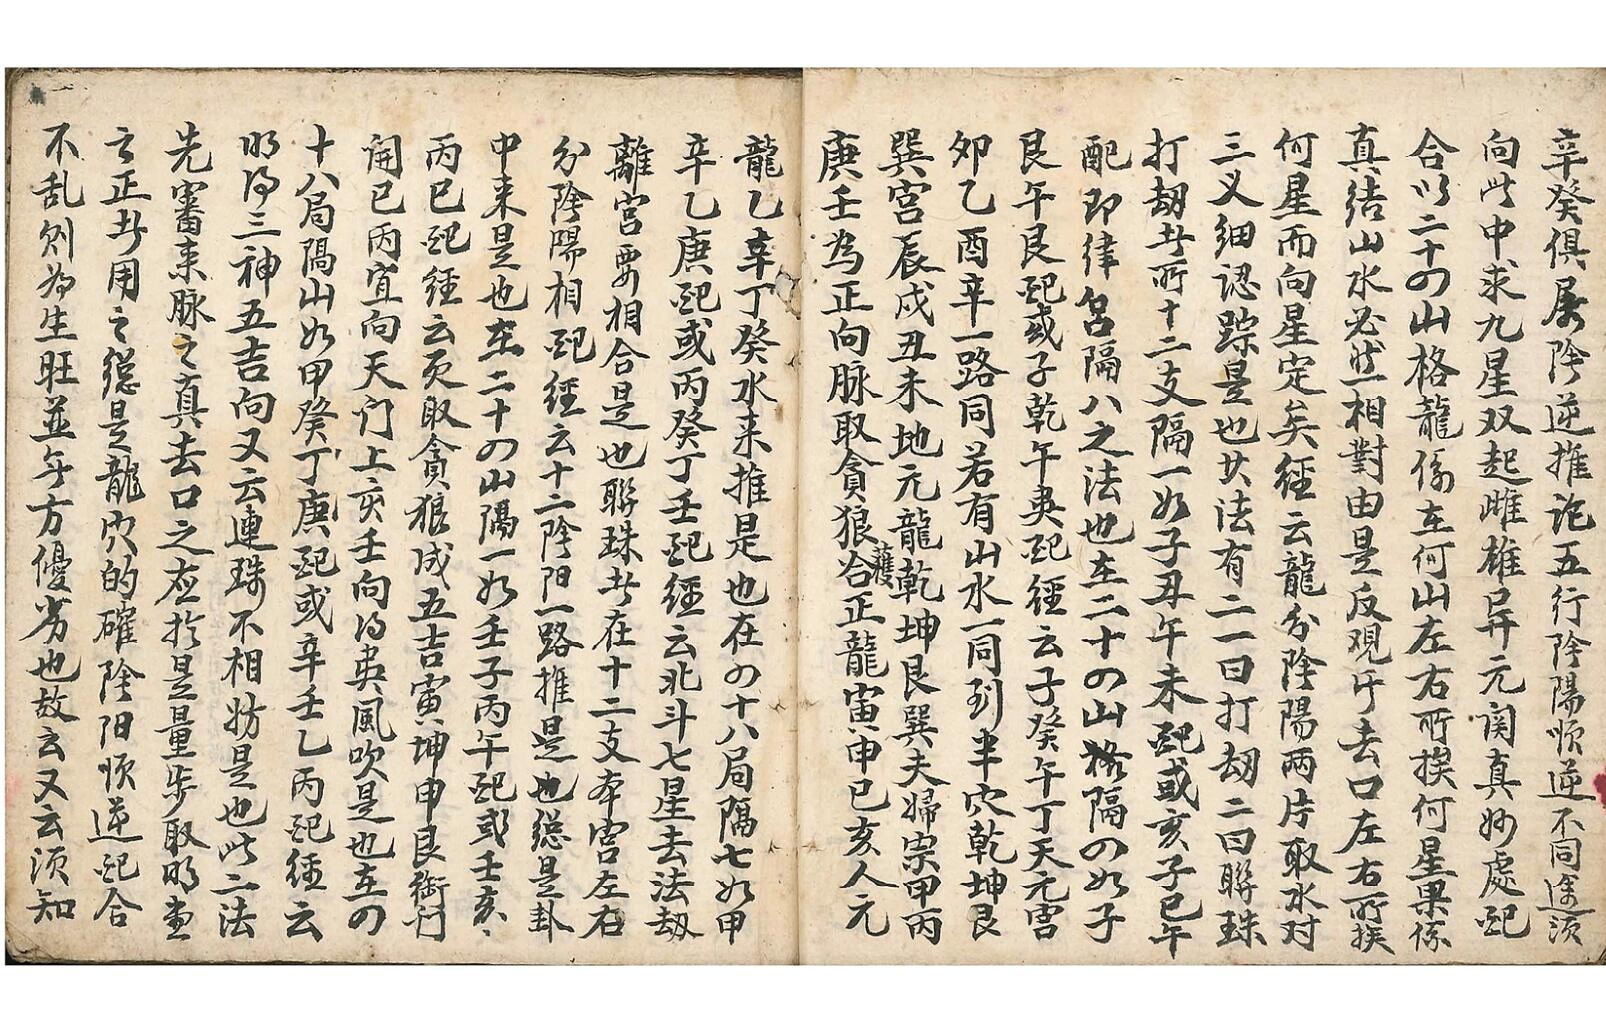 辛癸俱属陰逆推论五行陰陽順逆不同途須
向此中求九星双起雌雄异元関真妙處配
合以二十四山格龍係在何山左右所挨何星果係
真结山水必然相對由是反观片去口左右所挨
何星而向星定矣經云龍分陰陽两片取水对
三义细認踪是也其法有二一曰打劫二曰聯珠
打劫者所十二支隔一如子丑午未配或亥子巳午
配即律吕隔八之法也在二十四山格隔四如子
艮午艮配或子乾午巽配經云子癸午丁天元宫
卯乙酉辛一路同若有山水一同到半穴乾坤艮
巽宫辰戌丑未地元龍乾坤艮巽夫婦宗甲丙
庚壬為正向脉取貪狼護正龍寅申巳亥人元
龍乙辛丁癸水来推是也在四十八局隔七如甲
辛乙庚配或丙癸丁壬配經云北斗七星去法劫
離宫要相合是也聯珠者在十二支本宫左右
分陰陽相配經云十二陰阳一路推是也總是卦
中来是也在二十四山隔一如壬子丙午配或壬亥
丙巳配經云更取貪狼成五吉寅坤申艮御门
開巳丙宜向天门上亥壬向得巽風吹是也在四
十八局隔山如甲癸丁庚配或辛壬乙丙配經云
明得三神五吉向又云連珠不相妨是也此二法
先審来脉之真去口之应於是量步取的當
之正者用之總是龍穴的確陰阳順逆配合
不乱则為生旺並無方優劣也故云又云須知